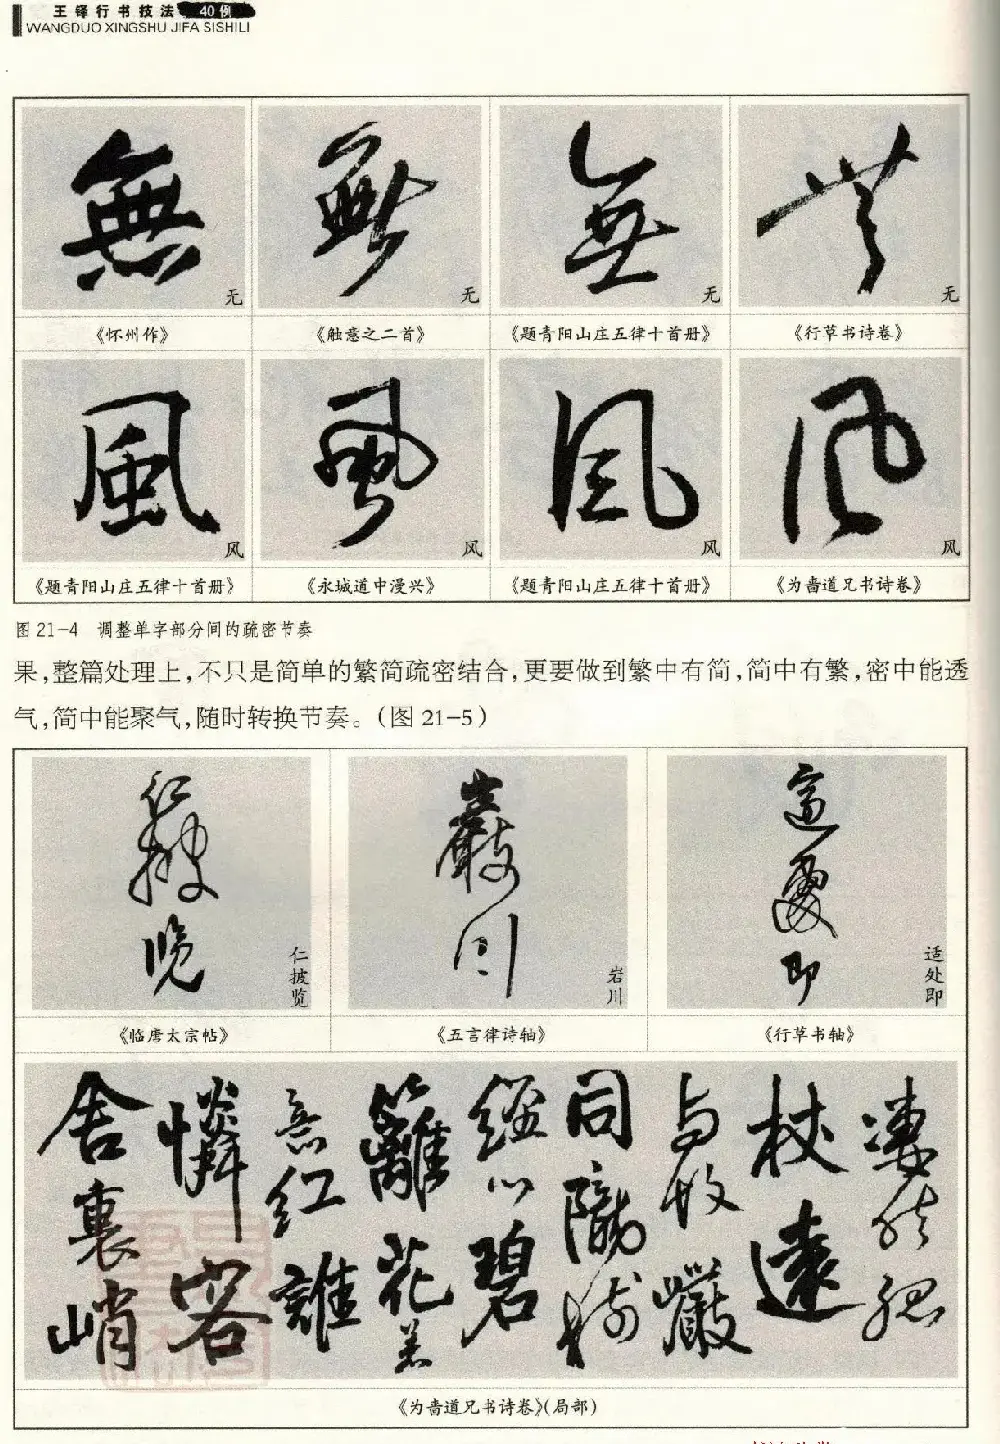 王铎行书技法 40例
WANGDUO XINGSHU JIFA SISHILI
無 無 無 無
无 无 无 无
《怀州作》 《触意之二首》 《题青阳山庄五律十首册》 《行草书诗卷》
風 風 風 风
风 风 风 风
《题青阳山庄五律十首册》 《永城道中漫兴》 《题青阳山庄五律十首册》 《为啬道兄书诗卷》
图 21-4 调整单字部分间的疏密节奏
果,整篇处理上,不只是简单的繁简疏密结合,更要做到繁中有简,简中有繁,密中能透
气,简中能聚气,随时转换节奏。(图 21-5)
仁披览
岩川
适处即
《临唐太宗帖》 《五言律诗轴》 《行草书轴》
杖遠
与故巖
同隴
經心碧
籬花
意红誰
憐客
舍裏峭
《为啬道兄书诗卷》(局部)